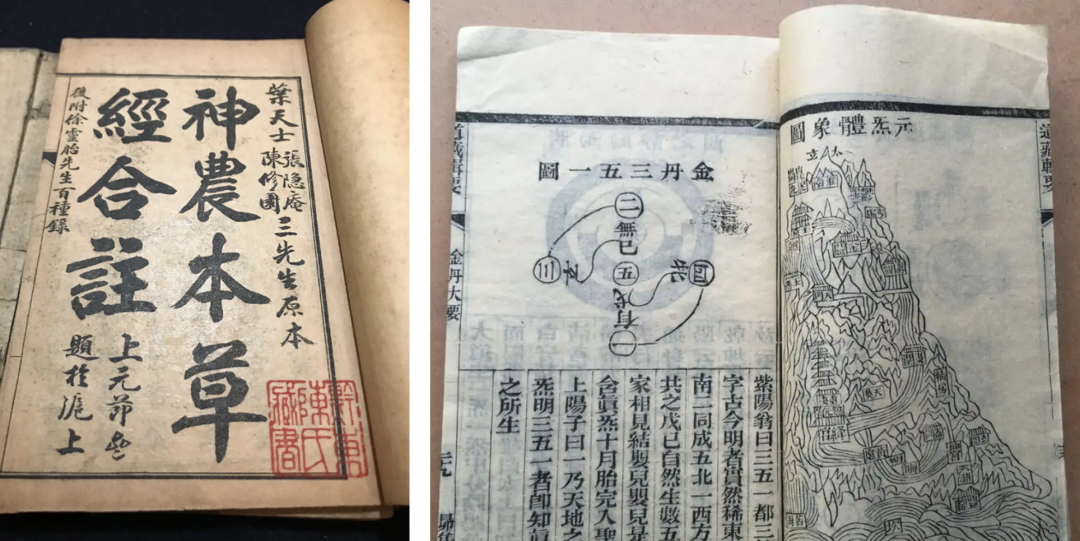 葉天士
張隐庵
陳修園
三先生原本
神農本草
經合註
上元節
題於滬上
後附徐靈胎先生百種錄
陳氏
藏書
道藏輯要
元炁體象圖
金丹三五一圖
二
無
己
三
五
四
戊
有
一
紫陽翁曰三五一都三
字古今明者實然稀東
南二同成五北一西方
共之戊己自然生數五
家相見結嬰兒嬰兒是
含眞炁十月胎完入聖
上陽子曰一乃天地之
炁明三五一者卽知眞
之所生
道藏輯要
金丹大要